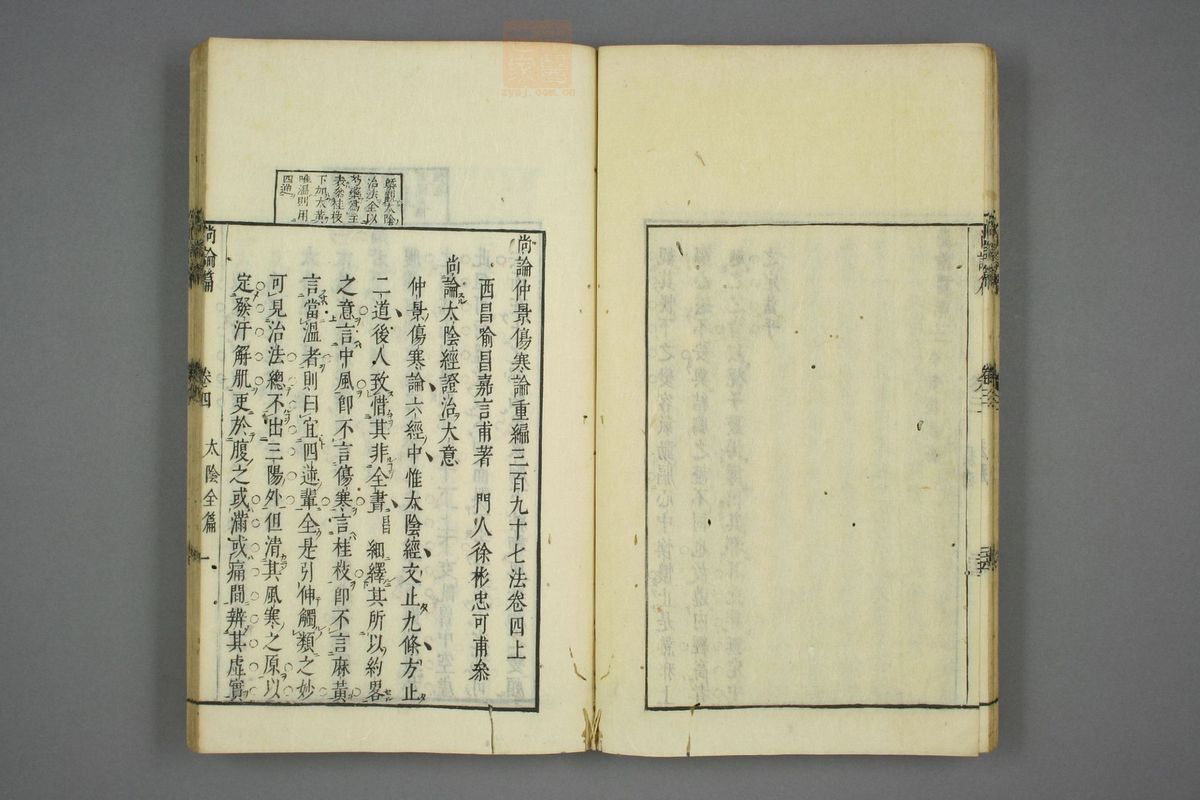 尚論仲景傷寒論重編三百九十七法卷四上
西昌喻昌嘉言甫著 門人徐彬忠可甫叅
尚論太陰經證治大意
仲景傷寒論六經中惟太陰經文止九條方止
二道後人致惜其非全書昌細繹其所以約畧
之意言中風卽不言傷寒言桂枝卽不言麻黃
言當溫者則曰宜四逆輩全是引伸觸類之妙
可見治法總不出三陽外但清其風寒之原以
定發汗解肌更於腹之或滿或痛間辨其虛實
太陰
治法全以
芍藥爲主
表叅桂枝
下加大黃
唯溫則用
四逆
尚論篇 卷四 太陰全篇 一
zysj.com.cn